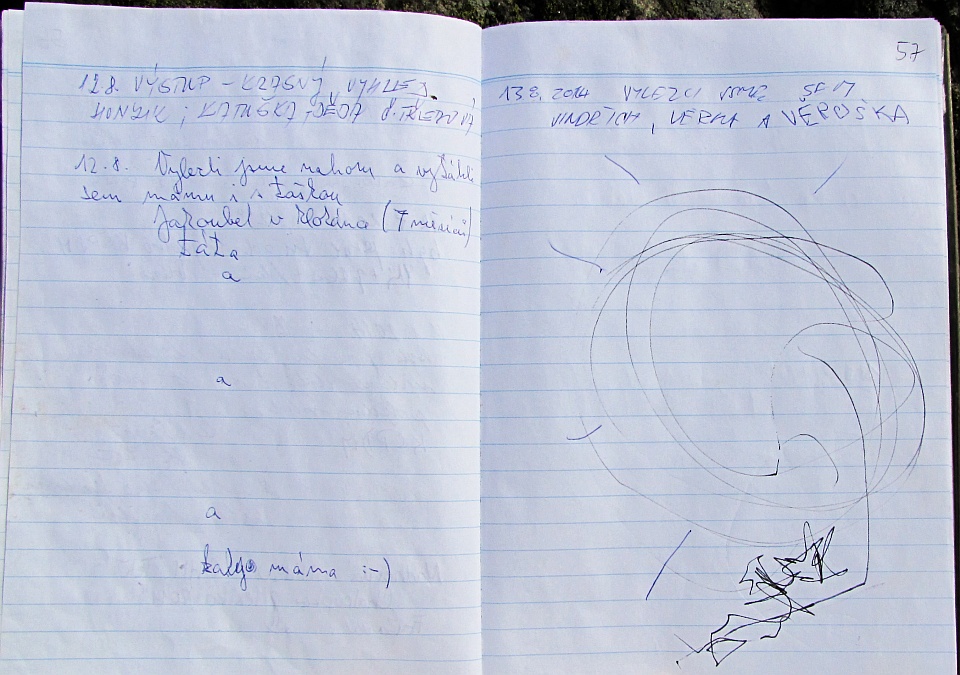 12.8. VÝSTUP - KRÁSNÝ, VÝHLED.
HONZÍK, KATUŠKA, DĚDA
12.8. Vylezli jsme nahoru a vytáhli
sem mámu i s taškou
Jakoubek v klokánce (7 měsíců)
táta
a
a
a
máma :-)
57
13.8. 2014 VYLEZLI JSME SEM
JINDŘICH, VĚRKA A VĚRUŠKA